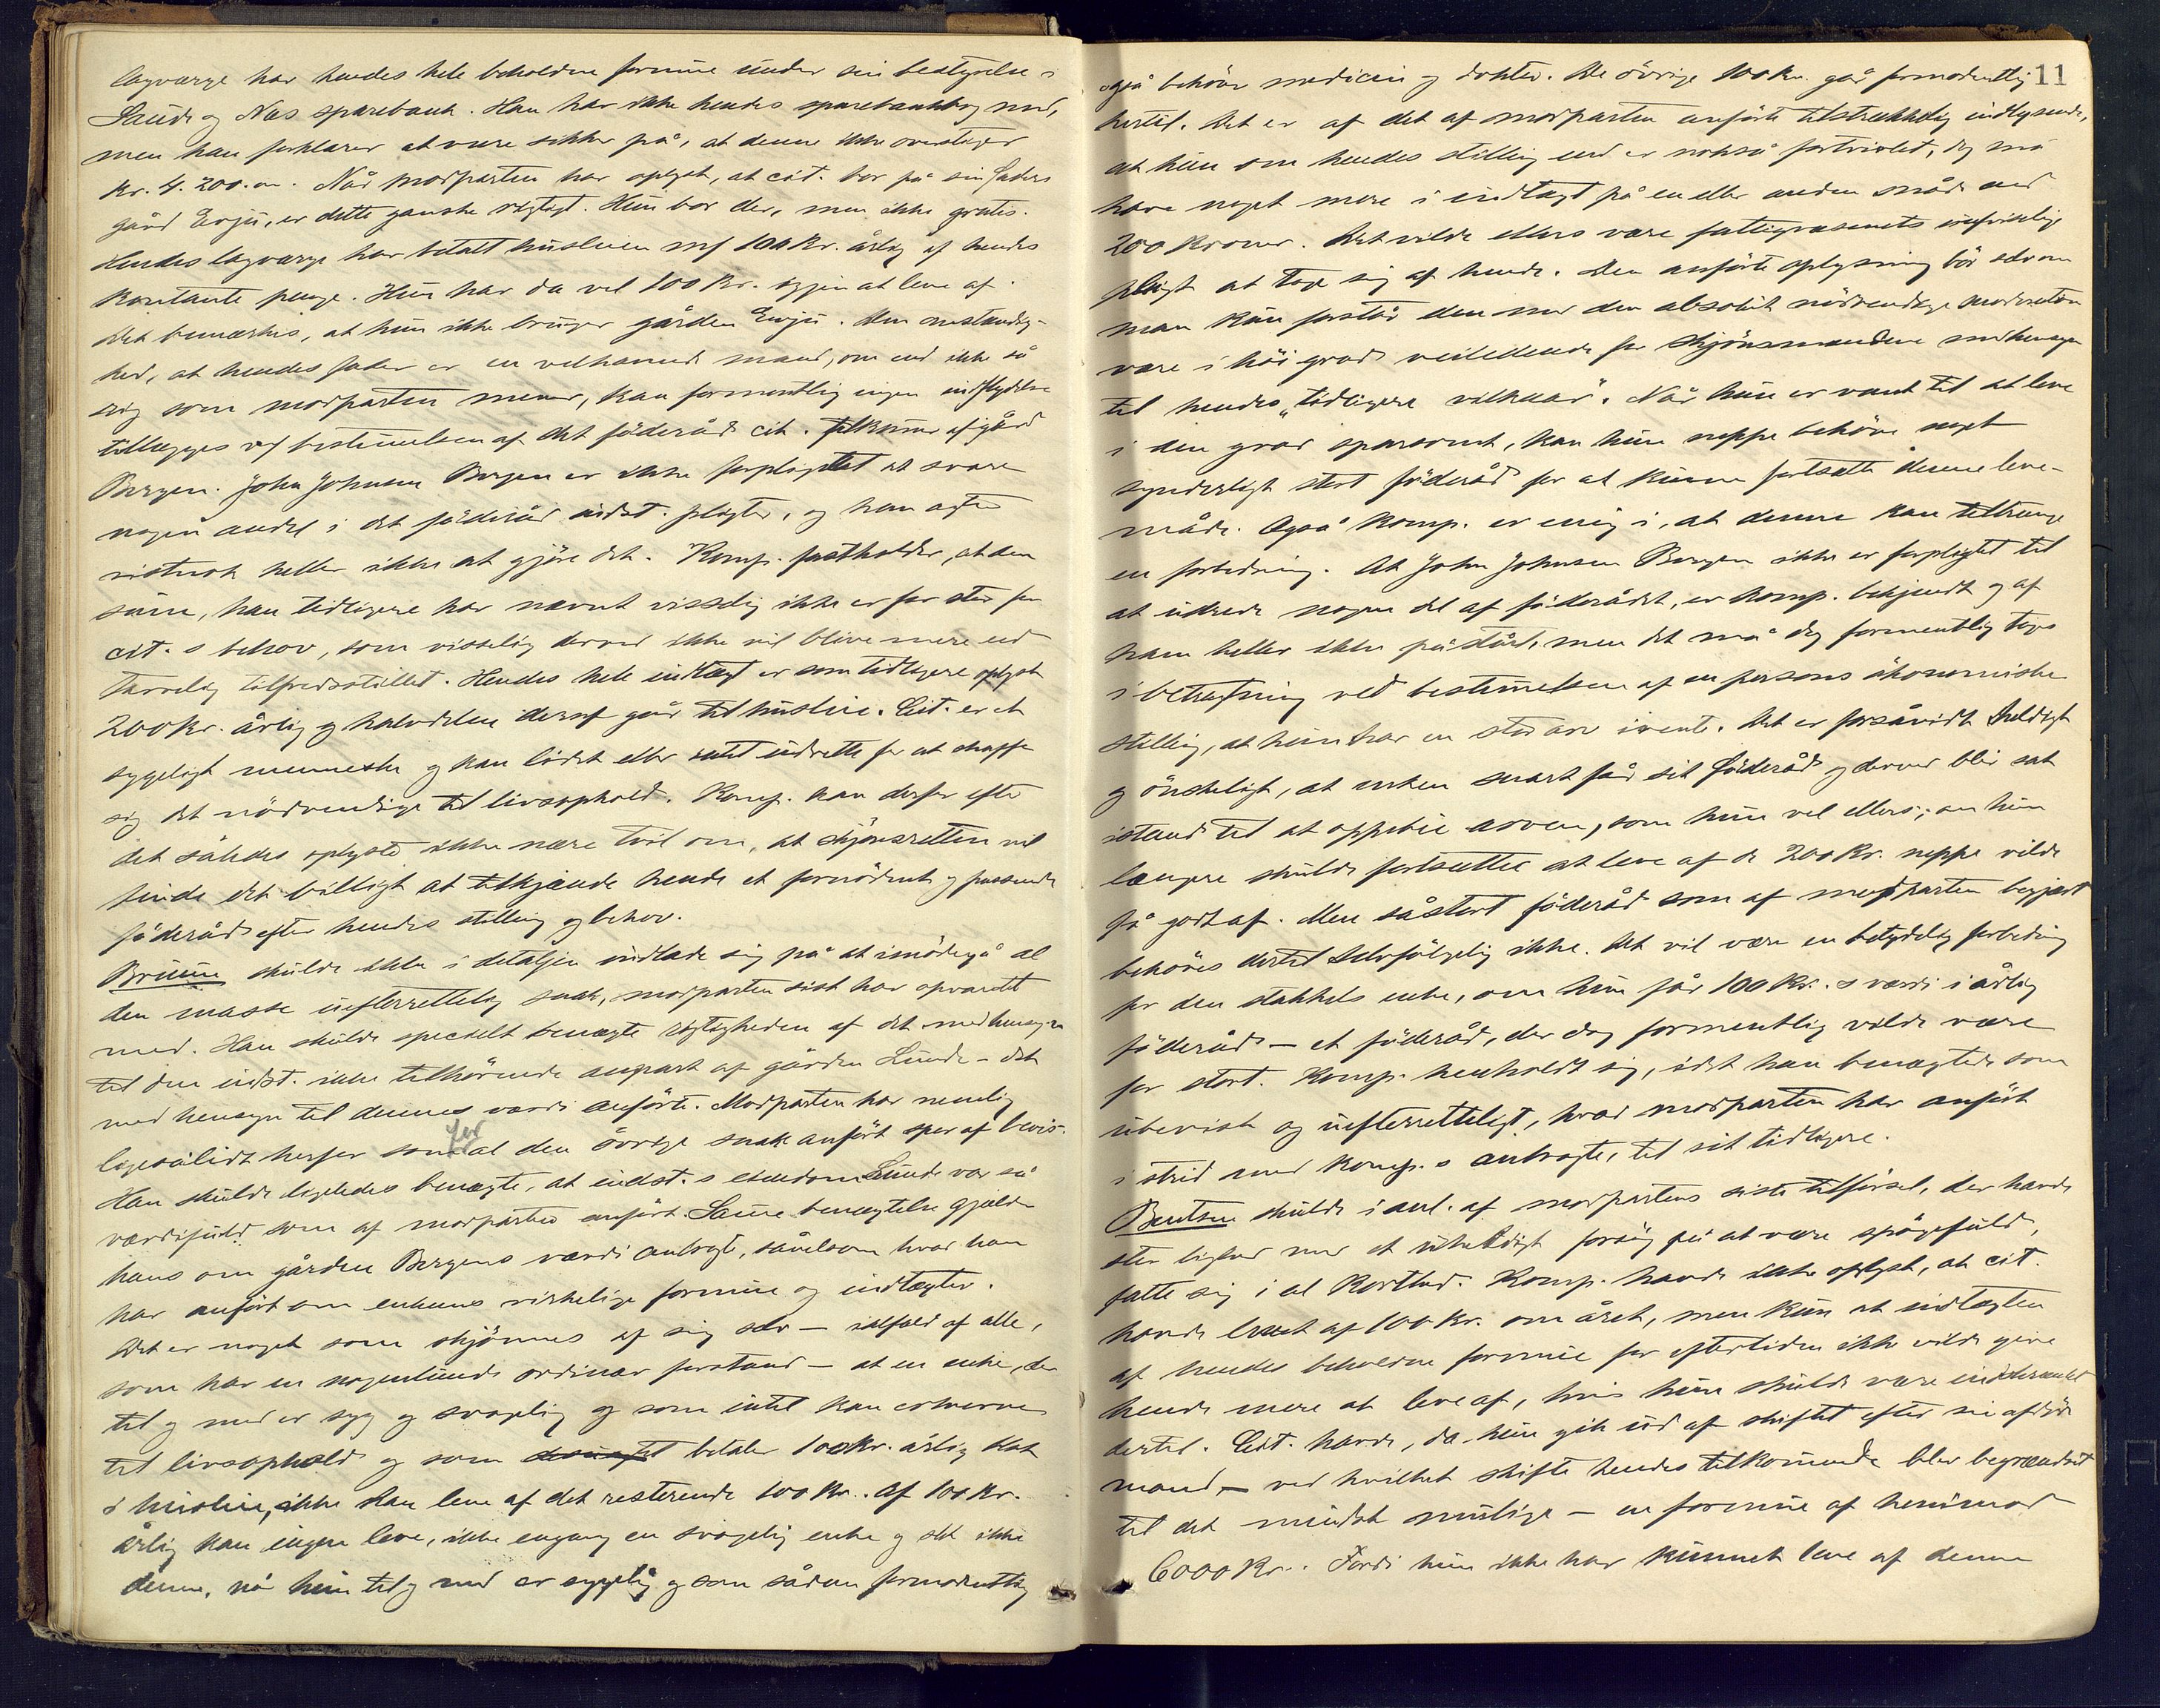 lagværge har hendes hele beholdne formue under sin bestyrelse i
Saude og Næs sparebank. Han har ikke hendes sparebankbog med,
men han forklarer at være sikker på, at denne ikke overstiger
kr. 4.200.00. Når modparten har oplyst, at cit. bor på sin faders
gård Evju, er dette ganske rigtigt. Hun bor der, men ikke gratis.
Hendes lagværge har betalt husleien m/ 100 kr. årlig af hendes
kontante penge. Hun har da vel 100 kr. igjen at leve af.
Det bemærkes, at hun ikke bruger gården Evju. Den omstændig-
hed, at hendes fader er en velhavende mand, om end ikke så
rig som modparten mener, kan formentlig ingen indflydelse
tillægges v/ bestemmelsen af det föderåd cit. tilkommer af gård
Borgen. John Johnsen Borgen er ikke forpligtet at svare
nogen andel i det föderåd indst. pligter, og han agter
sikkert heller ikke at gjöre det. Komp. fastholder, at den
sum, han tidligere har nævnt visselig ikke er for stor for
cit.s behov, som visselig derved ikke vil blive mere end
tarvelig tilfredsstillet. Hendes hele indtægt er som tidligere oplyst
200 kr. årlig og halvdelen deraf går til husleie. Cit. er et
sygeligt menneske og kan lidet eller intet udrette for at skaffe
sig det nödvendige til livsophold. Komp. kan derfor efter
det således oplyste ikke nære tvil om, at skjönsretten vil
finde det billigt at tilkjende hende et fornödent og passende
föderåd efter hendes stilling og behov.
Bruun skulde ikke i detaljen indlade sig på at imödegå al
den masse uefterrettelig snak, modparten sist har opvartet
med. Han skulde specielt benægte rigtigheden af det med hensyn
til den indst. ikke tilhörende anpart af gården Lunde – det
med hensyn til dennes værdi anförte. Modparten har nemlig
ligesålidt herfor som for al den övrige snak anfört spor af bevis.
Han skulde ligeledes benægte, at indst.s eiendom Lunde var så
værdifuld som af modparten anfört. Samme benægtelse gjælder
hans om gården Borgens værdi anbragte, såvelsom hvad han
har anfört om enkens virkelige formue og indtægter.
Det er noget som skjönnes af sig selv – ialfald af alle,
som har en nogenlunde ordinær forstand – at en enke, der
til og med er syg og svagelig og som intet kan erhverve
til livsophold og som betaler 100 kr. årlig
i husleie, ikke kan leve af det resterende 100 kr. Af 100 kr.
årlig kan ingen leve, ikke engang en svagelig enke og slet ikke
denne, når hun til og med er sygelig og som sådan formodentlig
11
også behöver medicin og doktor. De övrige 100 kr. går formodentlig
hertil. Det er af det af modparten anförte tilstrækkelig indlysende,
at hun om hendes stilling end er nokså fortvivlet, dog må
have noget mere i indtægt på en eller anden måde end
200 kroner. Det vilde ellers være fattigvæsenets uafviselige
pligt at tage sig af hende. Den anförte oplysning bör selv om
man kun forstår den med den absolut nödvendige moderation
være i höi grad veiledende for skjönsmændene med hensyn
til hendes „tidligere vilkaar". Når hun er vant til at leve
i den grad sparsomt, kan hun neppe behöve noget
synderligt stort föderåd for at kunne fortsætte denne leve-
måde. Også komp. er enig i, at denne kan tiltrænge
en forbedring. At John Johnsen Borgen ikke er forpligtet til
at udrede nogen del af föderådet, er komp. bekjendt og af
ham heller ikke påstået, men det må dog formentlig tages
i betragtning ved bestemmelsen af en persons ökonomiske
stilling, at hun har en stor arv ivente. Det er forsåvidt heldigt
og önskeligt, at enken snart får sit föderåd og derved blir sat
istand til at oppebie arven, som hun vel ellers, om hun
længere skulde fortsætte at leve af de 200 kr. neppe vilde
få godt af. Men så stort föderåd som af modparten begjært
behöves dertil selvfölgelig ikke. Det vil være en betydelig forbedring
for den stakkels enke, om hun får 100 kr.s værdi i årlig
föderåd – et föderåd, der dog formentlig vilde være
for stort. Komp. henholdt sig, idet han benægtede som
ubevist og uefterretteligt, hvad modparten har anfört
i strid med komp.s anbragte, til sit tidligere.
Bentsen skulde i anl. af modpartens siste tilförsel, der havde
stor lighed med et uheldigt forsög på at være spögefuld,
fatte sig i al korthed. Komp. havde ikke oplyst, at cit.
havde levet af 100 kr. om året, men kun at indtægten
af hendes beholdne formue for eftertiden ikke vilde give
hende mere at leve af, hvis hun skulde være indskrænket
dertil. Cit. havde, da hun gik ud af skiftet efter sin afdöde
mand – ved hvilket skifte hendes tilkommende blev begrændset
til det mindst mulige – en formue af henimod
6000 kr. Fordi hun ikke har kunnet leve af denne